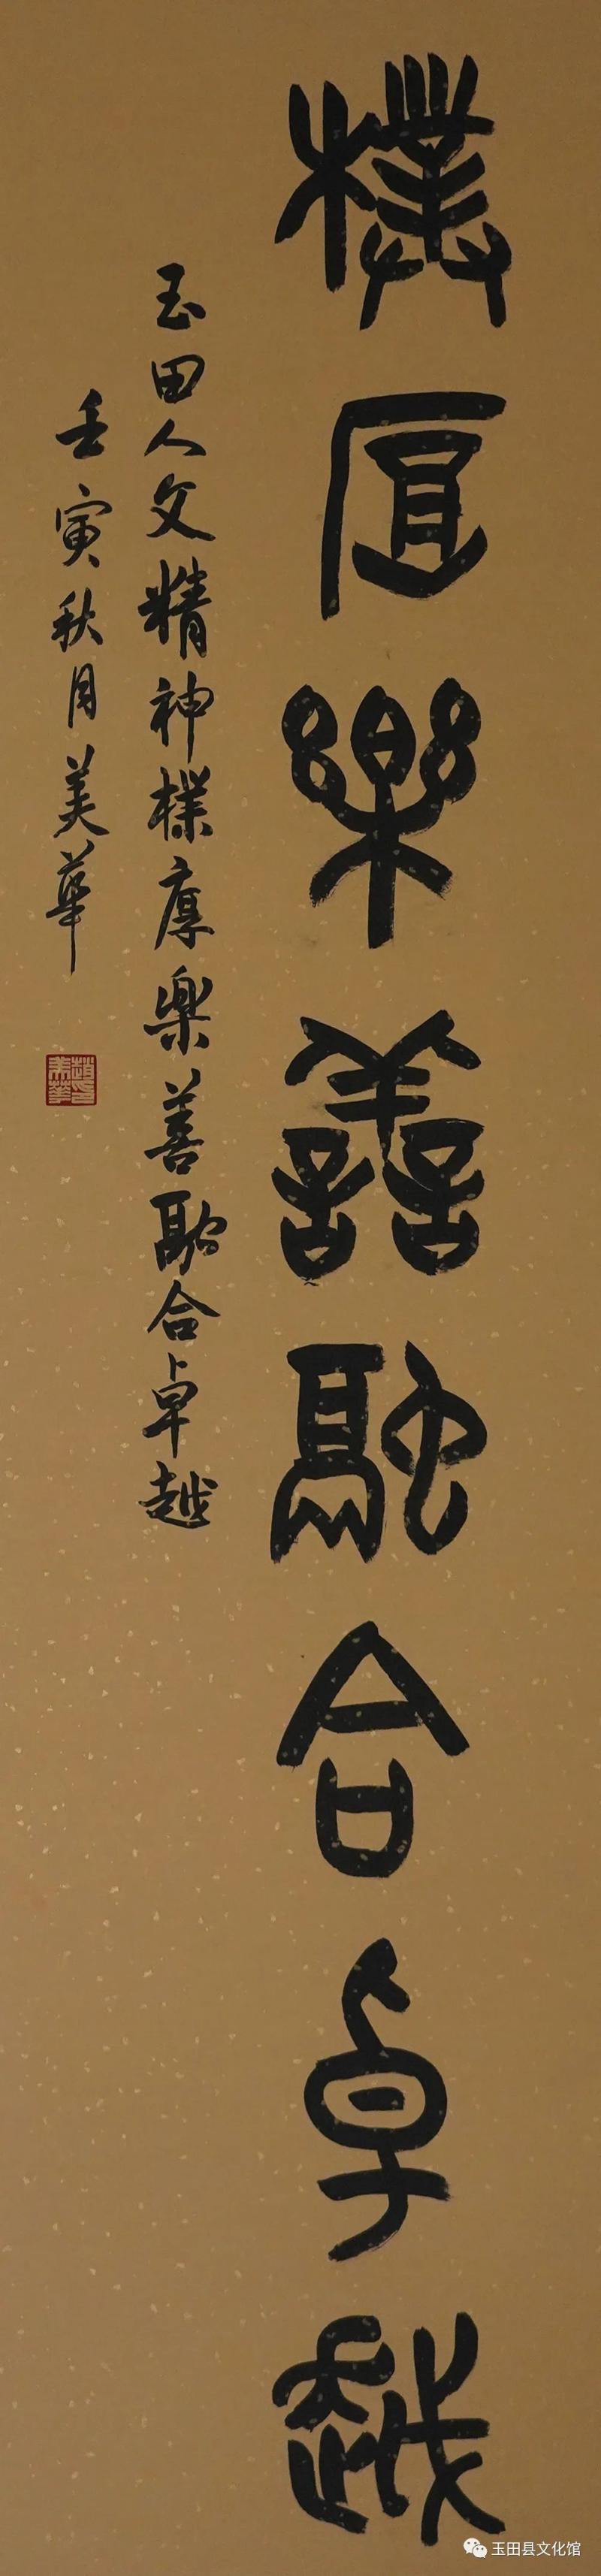 樸厚樂善融合卓越
玉田人文精神樸厚樂善融合卓越
壬寅秋月美華
趙美華
玉田县文化馆